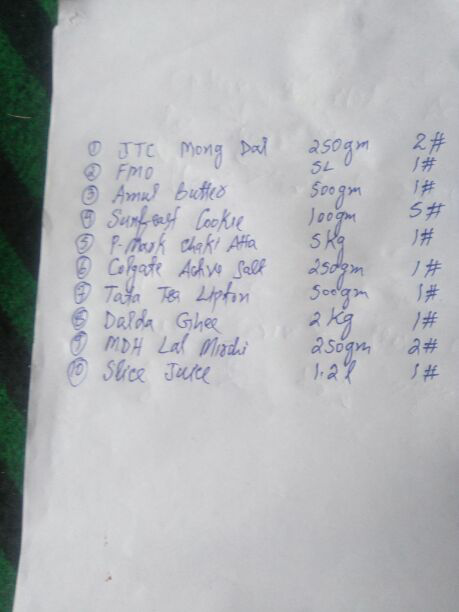 ① JTC Mong Dal 250gm 2#
② FMO 5L 1#
③ Amul Butter 500gm 1#
④ Sunfeast Cookie 100gm 5#
⑤ P-Mark Chaki Atta 5 Kg 1#
⑥ Colgate Active Salt 250gm 1#
⑦ Tata Tea Lipton 500gm 1#
⑧ Dalda Ghee 2 Kg 1#
⑨ MDH Lal Mirchi 250gm 2#
⑩ Slice Juice 1.2 l 1#